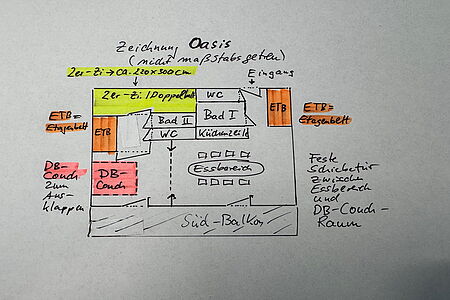 Zeichnung Oasis
(nicht maßstabsgetreu)
2er-Zi → ca. 220x300cm
Eingang
2er-Zi./Doppelbett
WC
ETB
ETB=
Etagenbett
ETB=
Etagenbett
ETB
Bad II
Bad I
WC
Küchenzeile
DB-
Couch
zum
Aus-
klappen
DB-
Couch
Essbereich
Feste
Schiebetür
zwischen
Essbereich
und
DB-Couch-
Raum
Süd-Balkon